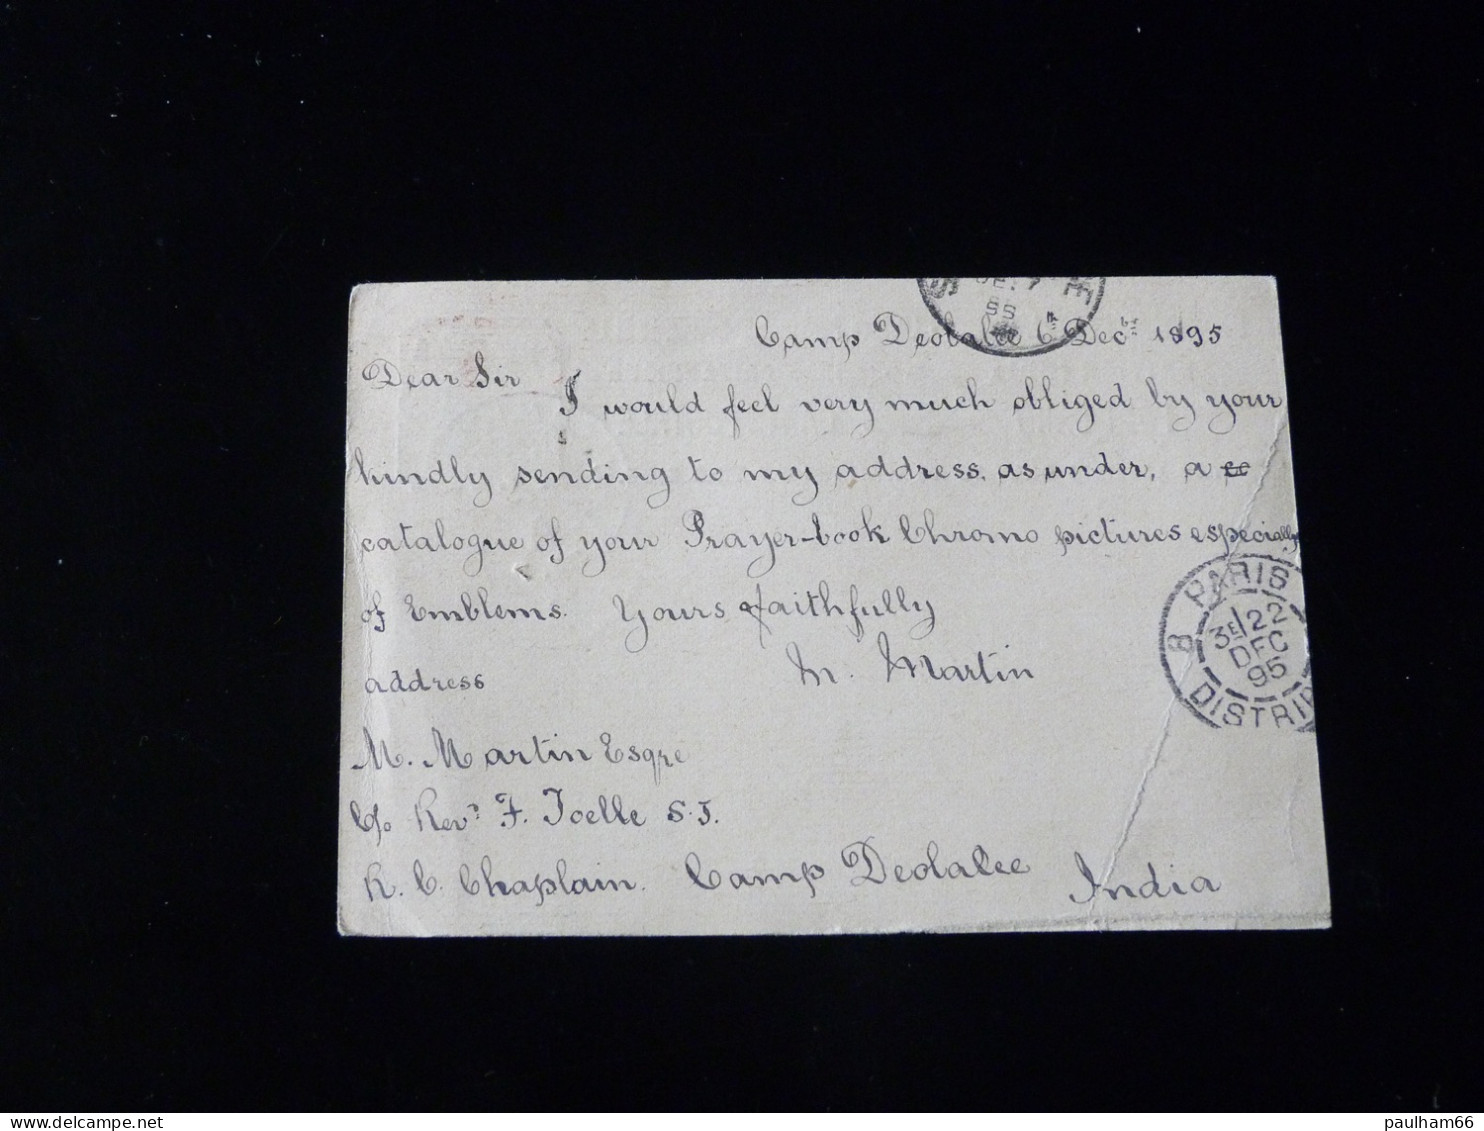 Camp Deolalee 6 Decbr 1895
Dear Sir
I would feel very much obliged by your
kindly sending to my address, as under, a
catalogue of your Prayer-book Chromo pictures especially
of Emblems. Yours faithfully
M. Martin
address
M. Martin Esqre
C/o Revd F. Toelle S.J.
R. C. Chaplain. Camp Deolalee India
8 PARIS
3E 22
DEC
95
DISTRIB
paulham66